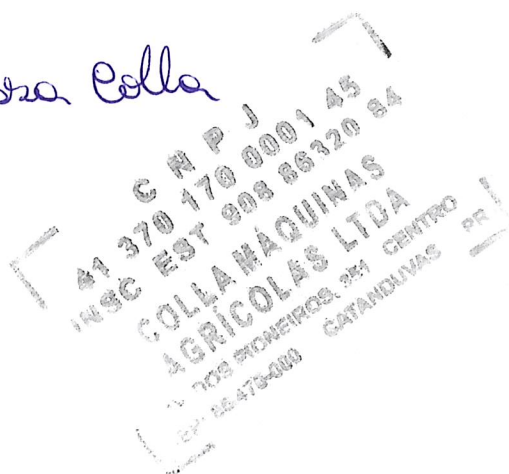 Colla
C N P J
41 370 170 0001 45
INSC EST 908 86320 84
COLLA MÁQUINAS
AGRÍCOLAS LTDA
DOS PIONEIROS, 951 CENTRO
85470-000 CATANDUVAS PR